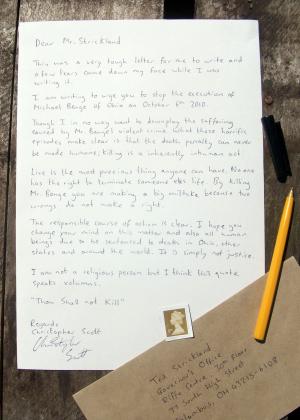 Dear Mr. Strickland
This was a very tough letter for me to write and
a few tears came down my face while I was
writing it.
I am writing to urge you to stop the execution of
Michael Benge of Ohio on October 6th 2010.
Though I in no way want to downplay the suffering
caused by Mr. Benge's violent crime. What these horrific
episodes make clear is that the death penalty can never
be made humane; killing is a inherently inhuman act.
Live is the most precious thing anyone can have. No one
has the right to terminate someone elses life. By killing
Mr. Benge you are making a big mistake because two
wrongs do not make a right.
The responsible course of action is clear. I hope you
change your mind on this matter and also all human
beings due to be sentenced to death in Ohio, other
states and around the world. It is simply not justice.
I am not a religious person but I think this quote
speaks volumes.
"Thou Shall not Kill"
Regards
Christopher Scott
Christopher
Scott
Ted Strickland
Governor's Office
Riffe Centre, 30th Floor
77 South High Street
Columbus, OH 43215-6108